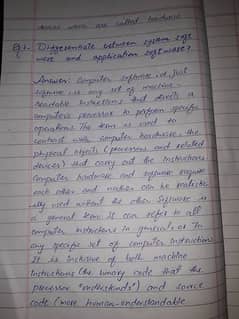 devices which are called hardware
Q1. Differentiate between system soft
ware and application software?
Answer: Computer software or just
software is any set of machine-
readable instructions that directs a
computer's processor to perform specific
operations. The term is used to
contrast with computer hardware, the
physical objects (processors and related
devices) that carry out the instructions.
Computer hardware and software require
each other and neither can be realistic
ally used without the other. Software is
a general term. It can refer to all
computer instructions in general or to
any specific set of computer instructions
It is inclusive of both machine
instructions (the binary code that the
processor "understands") and source
code (more human-understandable